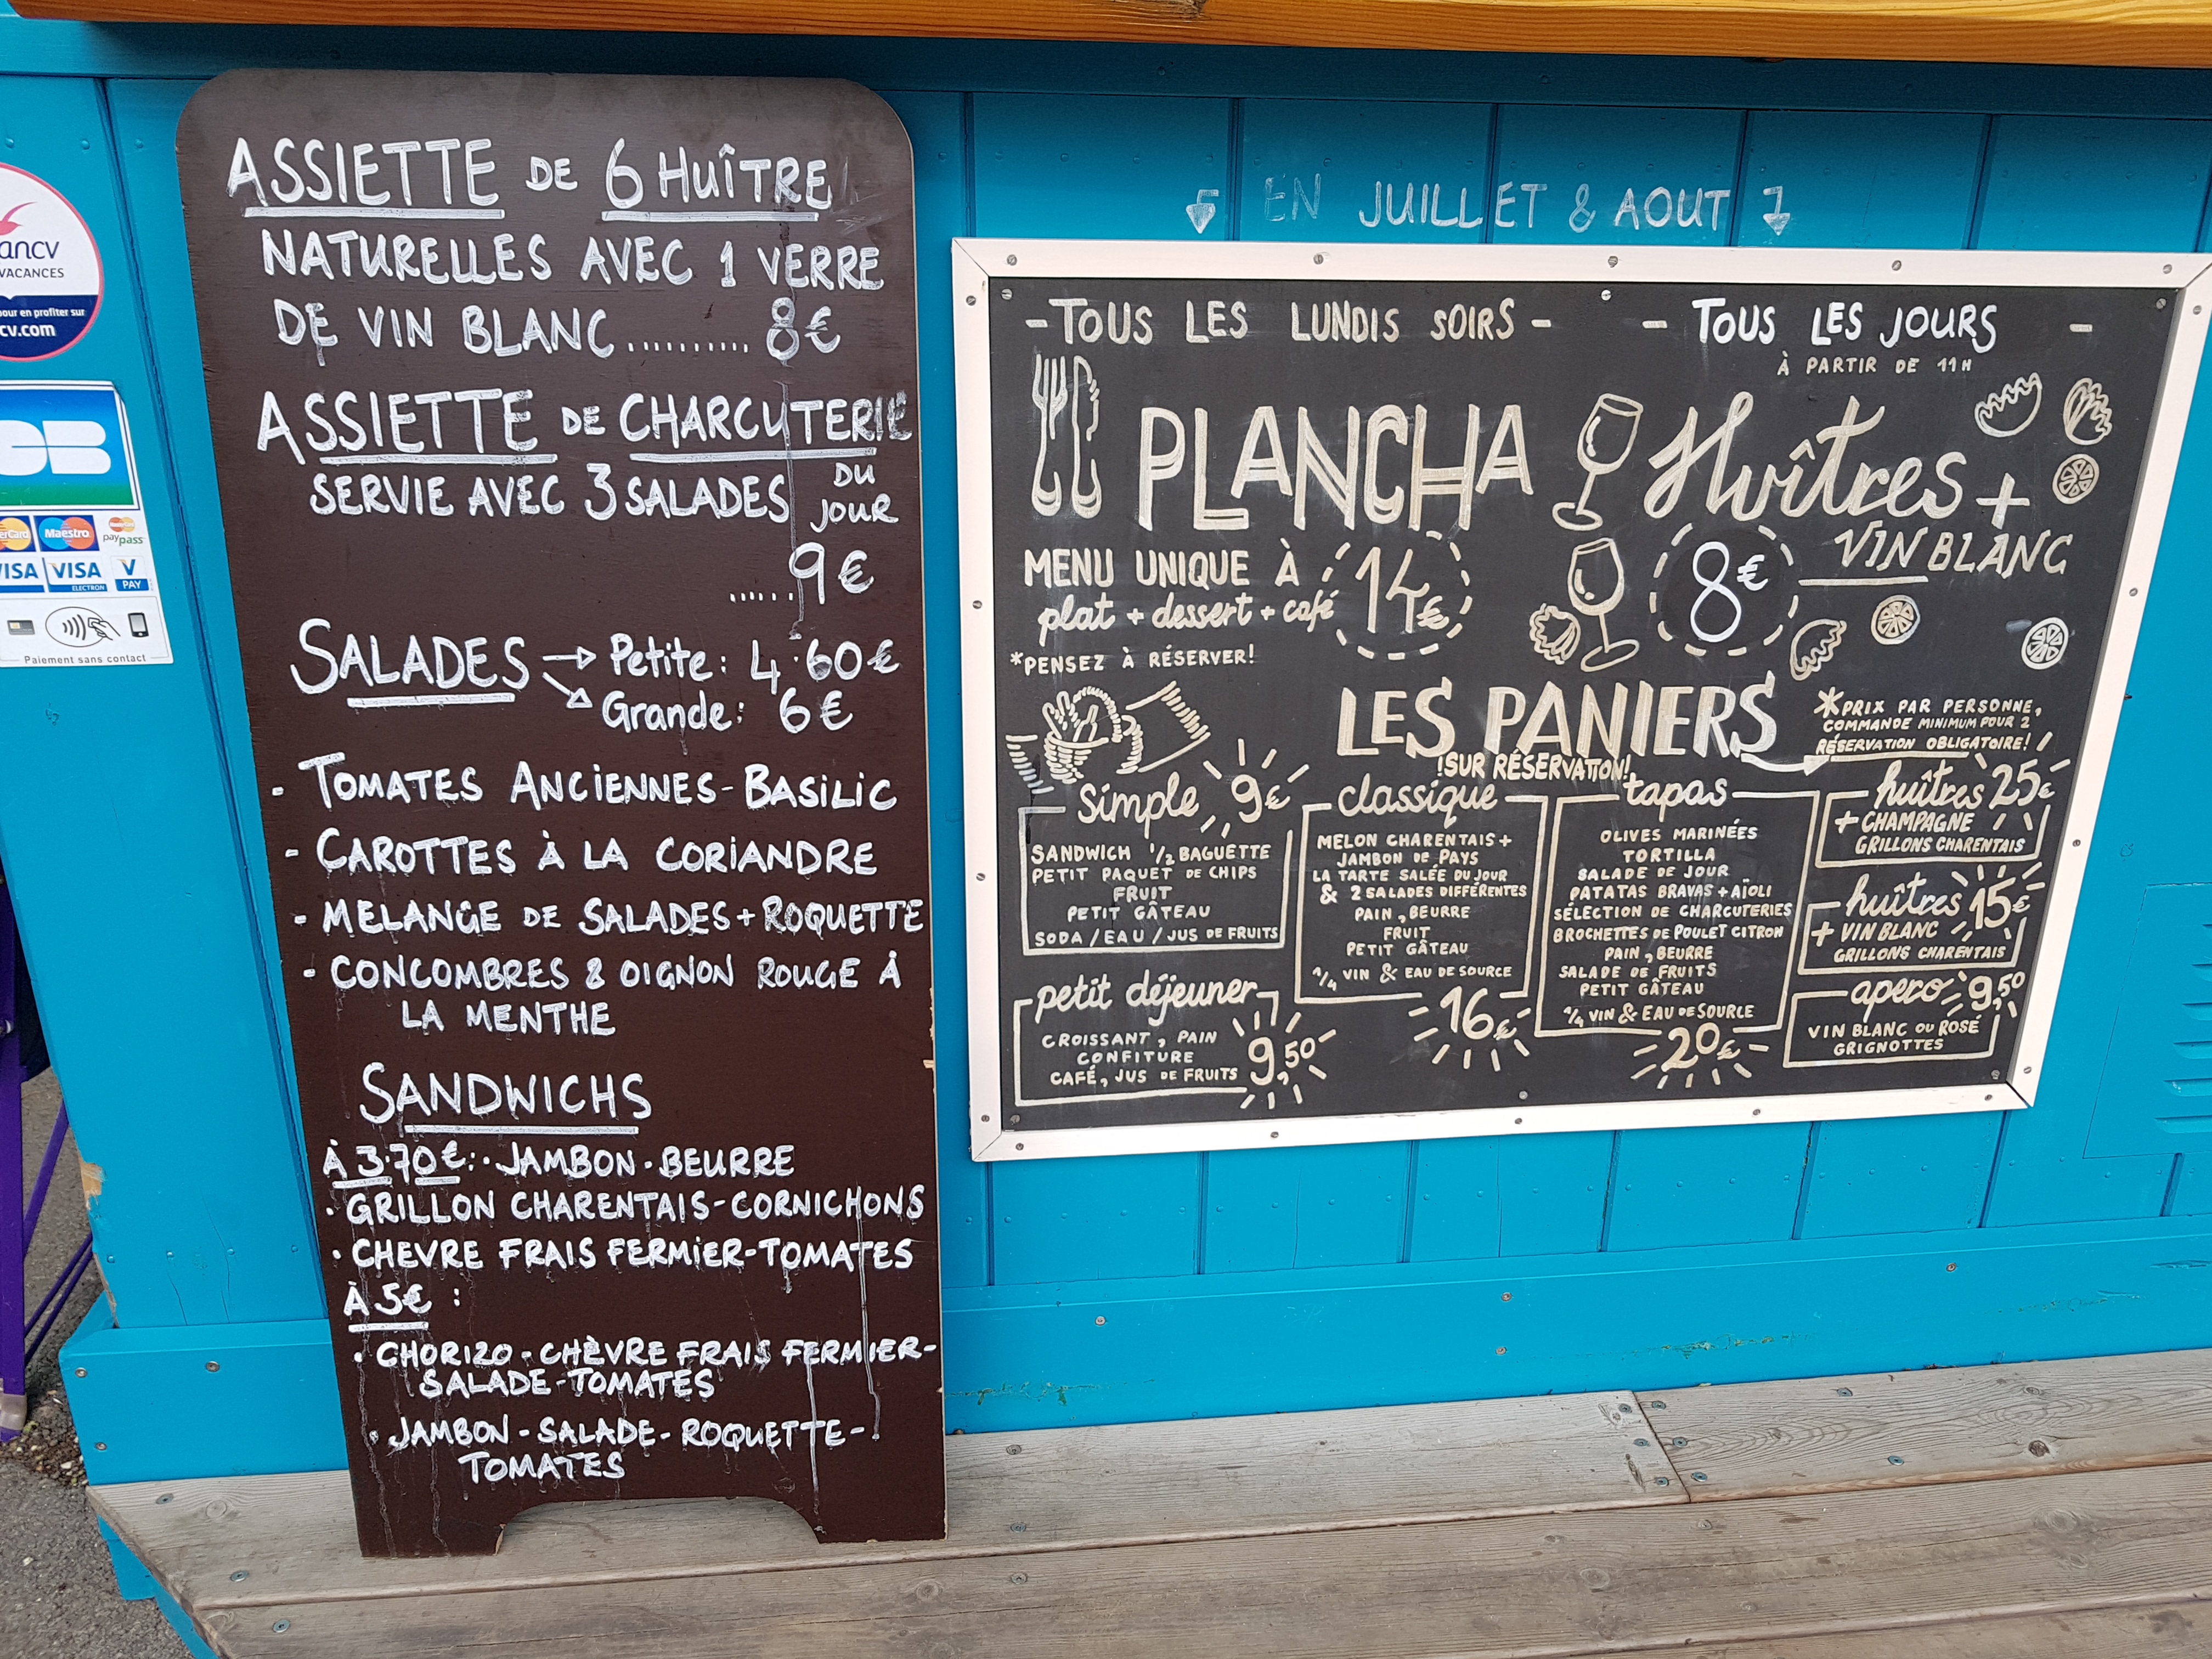 ancv
VACANCES
pour en profiter sur
cv.com
CB
Maestro
paypass
VISA
VISA
ELECTRON
V
PAY
Paiement sans contact
ASSIETTE DE 6 HUÎTRE
NATURELLES AVEC 1 VERRE
DE VIN BLANC........... 8€
ASSIETTE DE CHARCUTERIE
SERVIE AVEC 3 SALADES DU
JOUR
......9€
SALADES → Petite: 4.60€
Grande: 6€
- TOMATES ANCIENNES-BASILIC
- CAROTTES À LA CORIANDRE
- MELANGE DE SALADES+ROQUETTE
- CONCOMBRES & OIGNON ROUGE À
LA MENTHE
SANDWICHS
À 3.70€:· JAMBON-BEURRE
· GRILLON CHARENTAIS-CORNICHONS
· CHEVRE FRAIS FERMIER-TOMATES
À 5€ :
· CHORIZO-CHÈVRE FRAIS FERMIER-
SALADE-TOMATES
· JAMBON-SALADE-ROQUETTE-
TOMATES
EN JUILLET & AOUT
- TOUS LES LUNDIS SOIRS -
PLANCHA
MENU UNIQUE À 14€
plat + dessert + café
*PENSEZ À RÉSERVER!
- TOUS LES JOURS -
À PARTIR DE 11H
Huîtres +
VIN BLANC
8€
LES PANIERS
!SUR RÉSERVATION!
*PRIX PAR PERSONNE,
COMMANDE MINIMUM POUR 2
RÉSERVATION OBLIGATOIRE!
simple 9€
SANDWICH 1/2 BAGUETTE
PETIT PAQUET DE CHIPS
FRUIT
PETIT GÂTEAU
SODA/EAU/JUS DE FRUITS
petit déjeuner
CROISSANT, PAIN
CONFITURE
CAFÉ, JUS DE FRUITS
9,50
classique
MELON CHARENTAIS +
JAMBON DE PAYS
LA TARTE SALÉE DU JOUR
& 2 SALADES DIFFÉRENTES
PAIN, BEURRE
FRUIT
PETIT GÂTEAU
1/4 VIN & EAU DE SOURCE
16€
tapas
OLIVES MARINÉES
TORTILLA
SALADE DE JOUR
PATATAS BRAVAS + AÏOLI
SÉLECTION DE CHARCUTERIES
BROCHETTES DE POULET CITRON
PAIN, BEURRE
SALADE DE FRUITS
PETIT GÂTEAU
1/4 VIN & EAU DE SOURCE
20€
huîtres 25€
+ CHAMPAGNE
GRILLONS CHARENTAIS
huîtres 15€
+ VIN BLANC
GRILLONS CHARENTAIS
apero 9,50
VIN BLANC OU ROSÉ
GRIGNOTTES